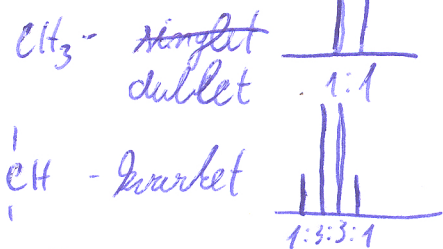 CH3 - singlet
dublet 1:1
CH - kwartet
1:3:3:1